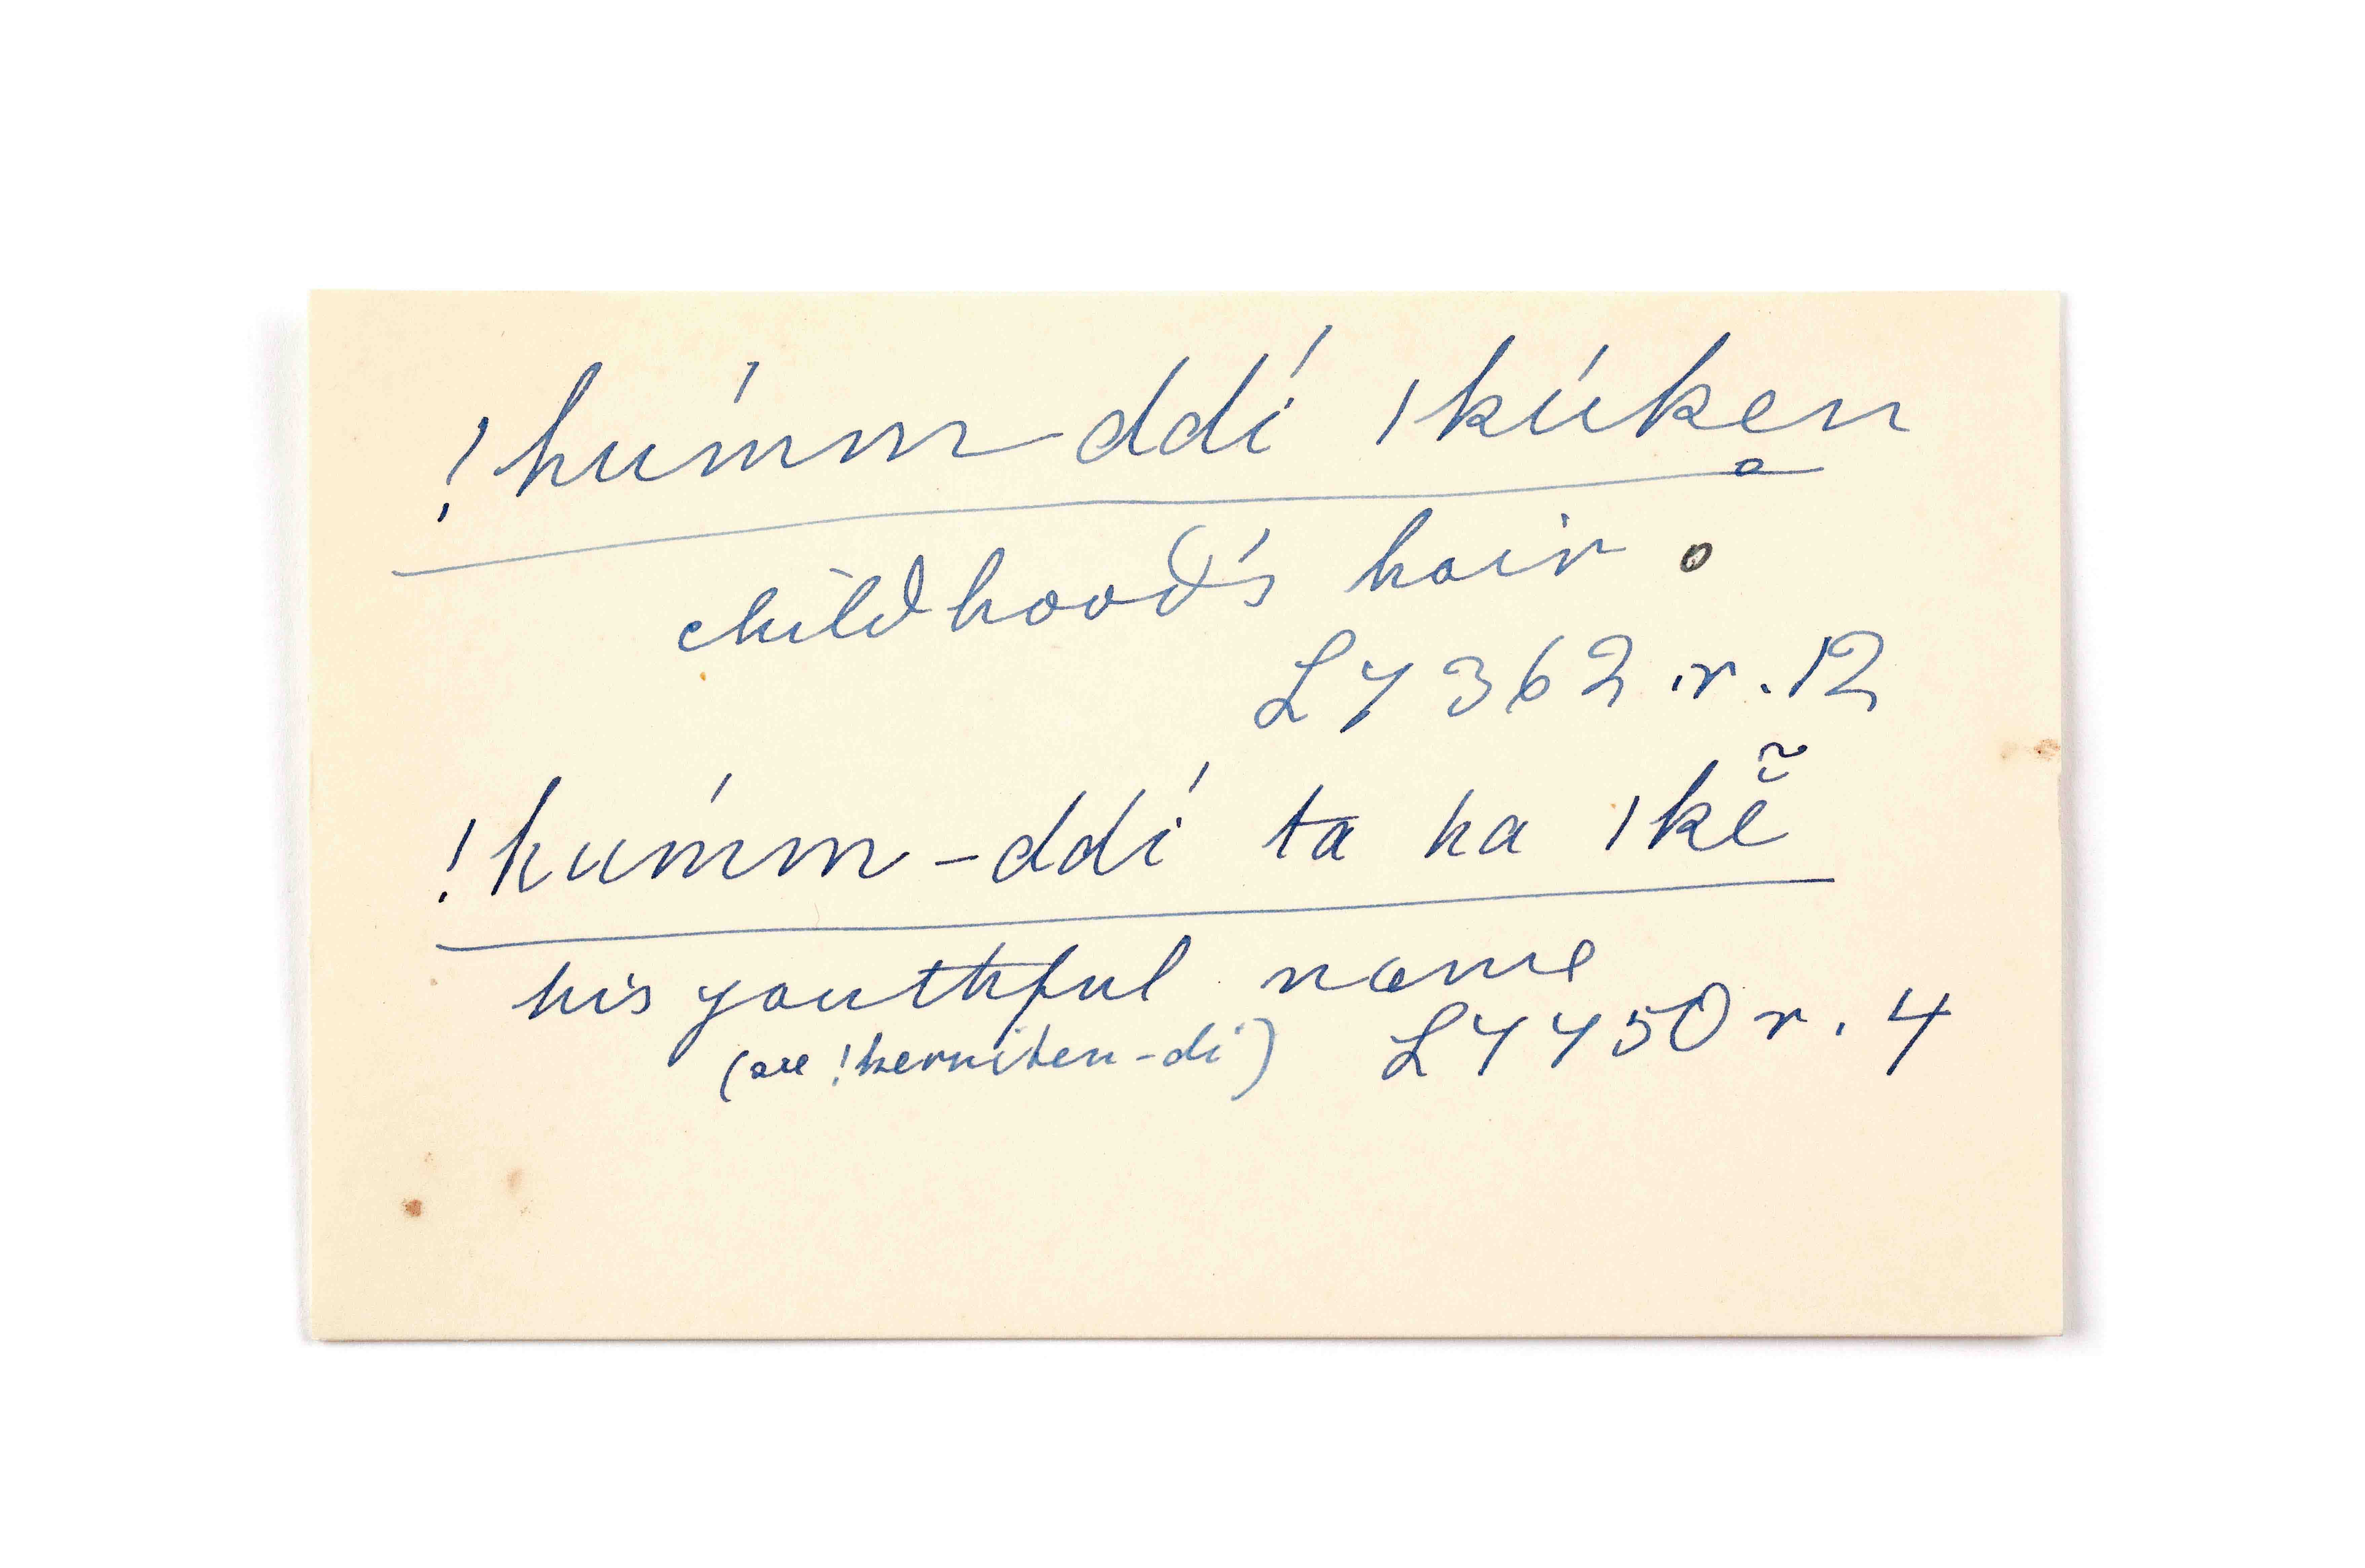 !húmm-ddí ǀkúken̥
childhood's hair.
L 4362.r.12
!húmm-ddí ta ha ǀkẽ̆
his youthful name
(see !kerriten-di) L 4450 r. 4